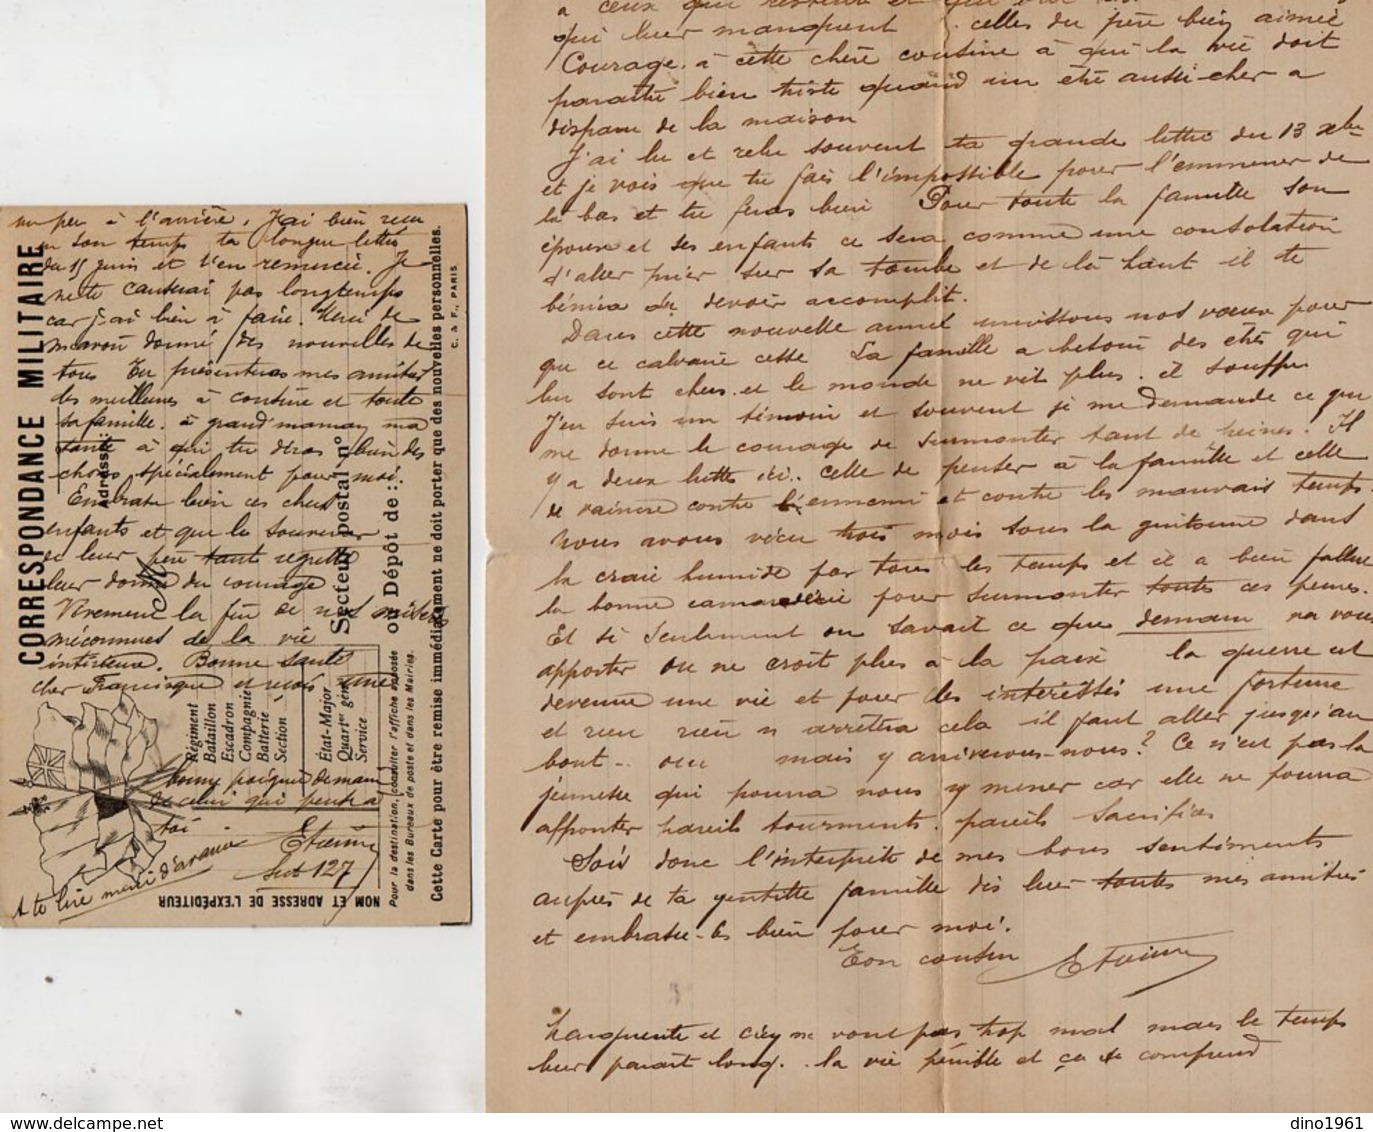 un peu à l'arrière. J'ai bien reçu
en son temps ta longue lettre
du 15 juin et t'en remercie. Je
ne te causerai pas longtemps
car j'ai bien à faire. Merci de
m'avoir donné des nouvelles de
tous Tu présenteras mes amitiés
des meilleures à cousine et toute
sa famille. à grand'maman ma
tante à qui tu diras bien des
choses, spécialement pour moi.
Embrasse bien ces chers
enfants et que le souvenir
de leur père tant regretté
leur donne du courage
Vivement la fin de nos misères
méconnues de la vie
intérieure. Bonne santé
cher Francisque et reçois une
bonne poignée de main
de celui qui pense à
toi
Etienne
Sect 127
A te lire merci d'avance
CORRESPONDANCE MILITAIRE
Adresse:
M
Secteur postal n°
ou Dépôt de :
Régiment
Bataillon
Escadron
Compagnie
Batterie
Section
État-Major
Quartier gén
Service
Pour la destination, consulter l'affiche apposée
dans les Bureaux de poste et dans les Mairies.
Cette Carte pour être remise immédiatement ne doit porter que des nouvelles personnelles.
C. & F., PARIS
NOM ET ADRESSE DE L'EXPÉDITEUR
à ceux qui restent et qui ont
qui leur manquent celles du père bien aimée
Courage à cette chère cousine à qui la vie doit
paraitre bien triste quand un être aussi cher a
disparu de la maison
J'ai lu et relu souvent ta grande lettre du 13 xbre
et je vois que tu fais l'impossible pour l'emmener de
la bas et tu feras bien Pour toute la famille son
épouse et ses enfants ce sera comme une consolation
d'aller prier sur sa tombe et de là haut il te
bénira du devoir accomplit.
Dans cette nouvelle année unissons nos vœux pour
que ce calvaire cesse La famille a besoin des êtres qui
lui sont chers et le monde ne vit plus. il souffre
J'en suis un témoin et souvent je me demande ce qui
me donne le courage de surmonter tant de peines. Il
y a deux luttes ici. celle de penser à la famille et celle
de vaincre contre l'ennemi et contre les mauvais temps.
Nous avons vécu trois mois sous la guitoune dans
la craie humide par tous les temps et il a bien fallu
la bonne camaraderie pour surmonter toutes ces peines.
Et si seulement on savait ce que demain va vous
apporter on ne croit plus à la paix la guerre est
devenue une vie et pour les intéressés une fortune
et rien rien n arrêtera cela il faut aller jusqu'au
bout .. oui mais y arriverons-nous? Ce n'est pas la
jeunesse qui pourra nous y mener car elle ne pourra
affronter pareils tourments. pareils sacrifices
Sois donc l'interprète de mes bons sentiments
auprès de ta gentille famille dis leur toutes mes amitiés
et embrasse-les bien pour moi.
Ton cousin Etienne
Marguerite et ne vont pas trop mal mais le temps
leur parait long. la vie pénible et ça se comprend
dino1961